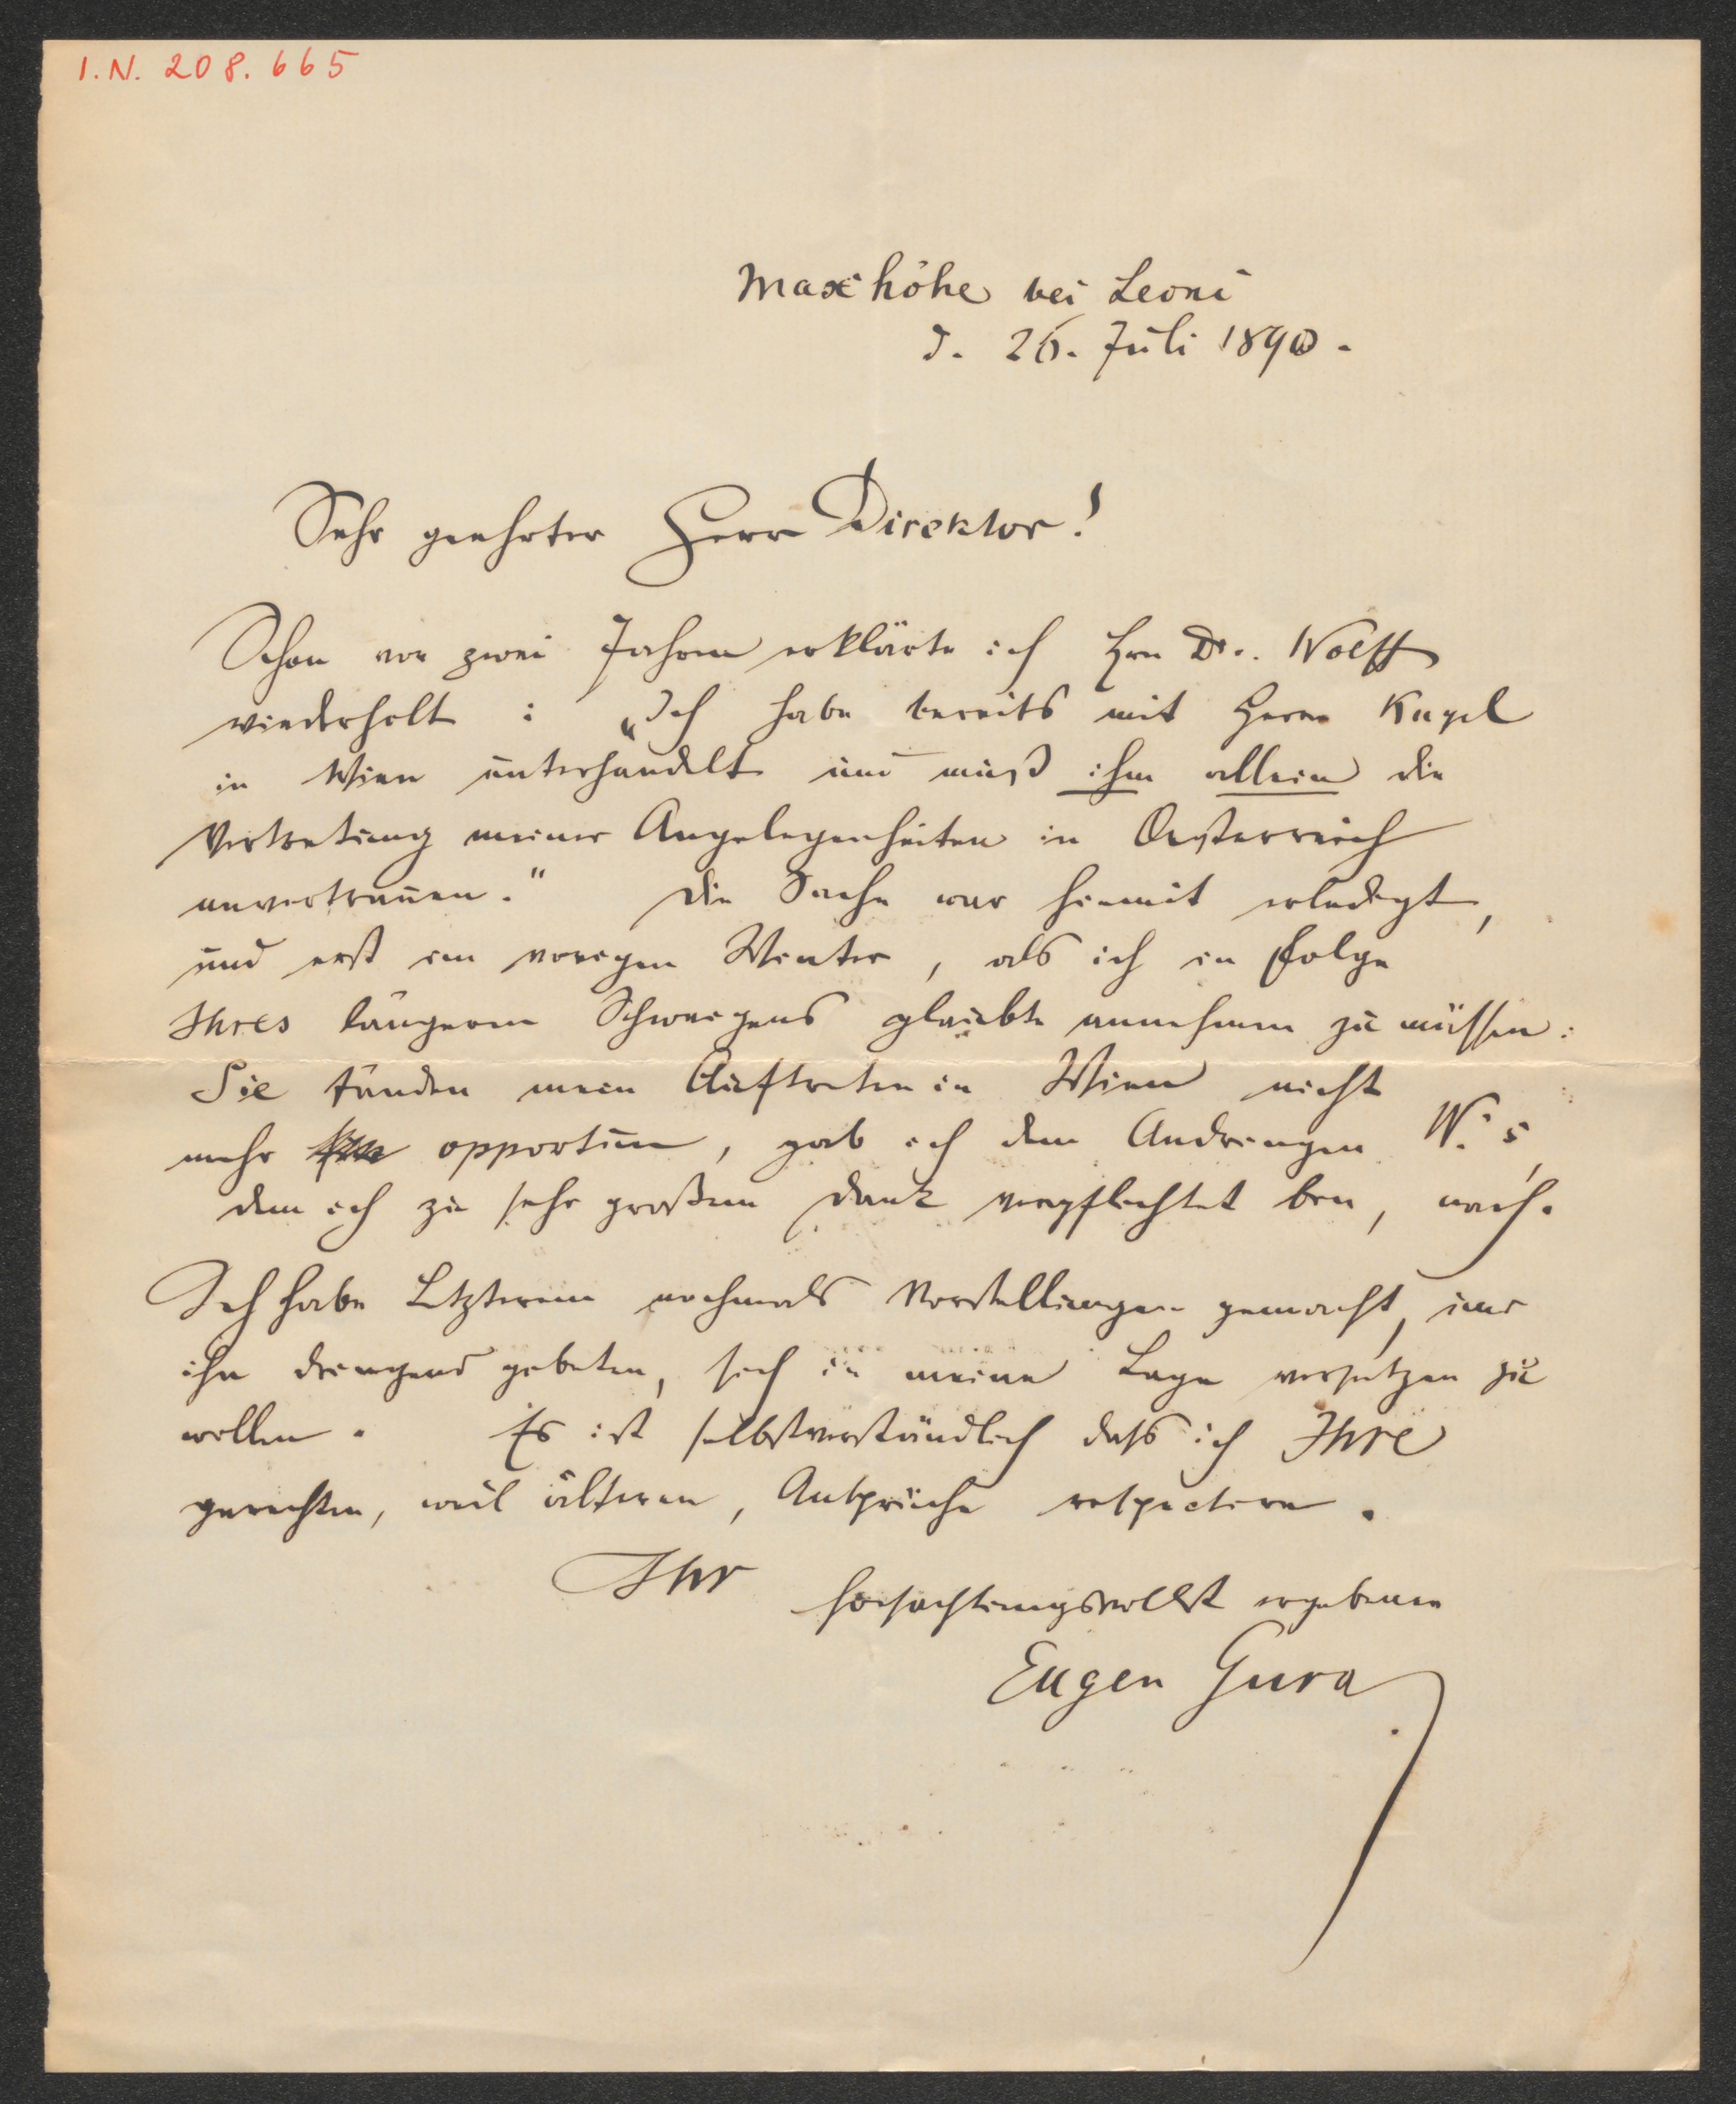 I.N. 208.665
Maxhöhe bei Leoni
d. 26. Juli 1890.
Sehr geehrter Herr Direktor!
Schon vor zwei Jahren erklärte ich Hrn Dr. Wolff
wiederholt: „Ich habe bereits mit Herrn Kugel
in Wien unterhandelt und muß ihm allein die
Vertretung meiner Angelegenheiten in Oesterreich
anvertrauen." Die Sache war hiemit erledigt,
und erst im vorigen Winter, als ich in Folge
Ihres längeren Schweigens glaubte annehmen zu müssen:
Sie fänden mein Auftreten in Wien nicht
mehr opportun, gab ich dem Andrängen W.'s,
dem ich zu sehr großem Dank verpflichtet bin, nach.
Ich habe Letzterem nochmals Vorstellungen gemacht, und
ihn dringend gebeten, sich in meine Lage versetzen zu
wollen. Es ist selbstverständlich daß ich Ihre
gerechten, weil älteren, Ansprüche respectire.
Ihr hochachtungsvollst ergebener
Eugen Gura